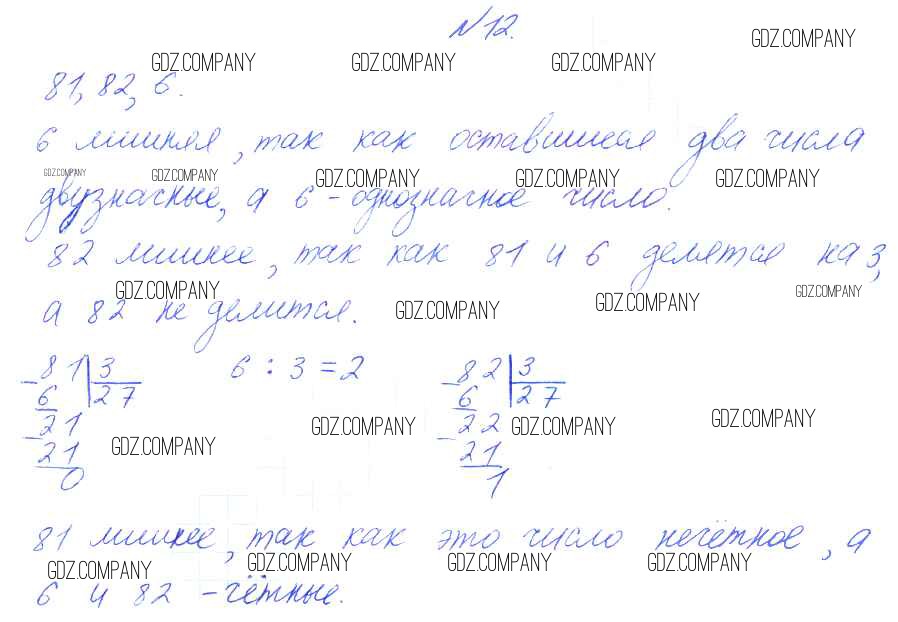 №12.
GDZ.COMPANY
GDZ.COMPANY GDZ.COMPANY GDZ.COMPANY
81, 82, 6.
6 лишняя, так как оставшиеся два числа
GDZ.COMPANY GDZ.COMPANY GDZ.COMPANY GDZ.COMPANY GDZ.COMPANY
двузначные, а 6 - однозначное число.
82 лишнее, так как 81 и 6 делятся на 3,
GDZ.COMPANY GDZ.COMPANY GDZ.COMPANY GDZ.COMPANY
а 82 не делится.
81 3 6 : 3 = 2 82 3
6 27 6 27
21 22
GDZ.COMPANY GDZ.COMPANY GDZ.COMPANY GDZ.COMPANY
21 21
0 1
81 лишнее, так как это число нечётное, а
GDZ.COMPANY GDZ.COMPANY GDZ.COMPANY GDZ.COMPANY
6 и 82 - чётные.